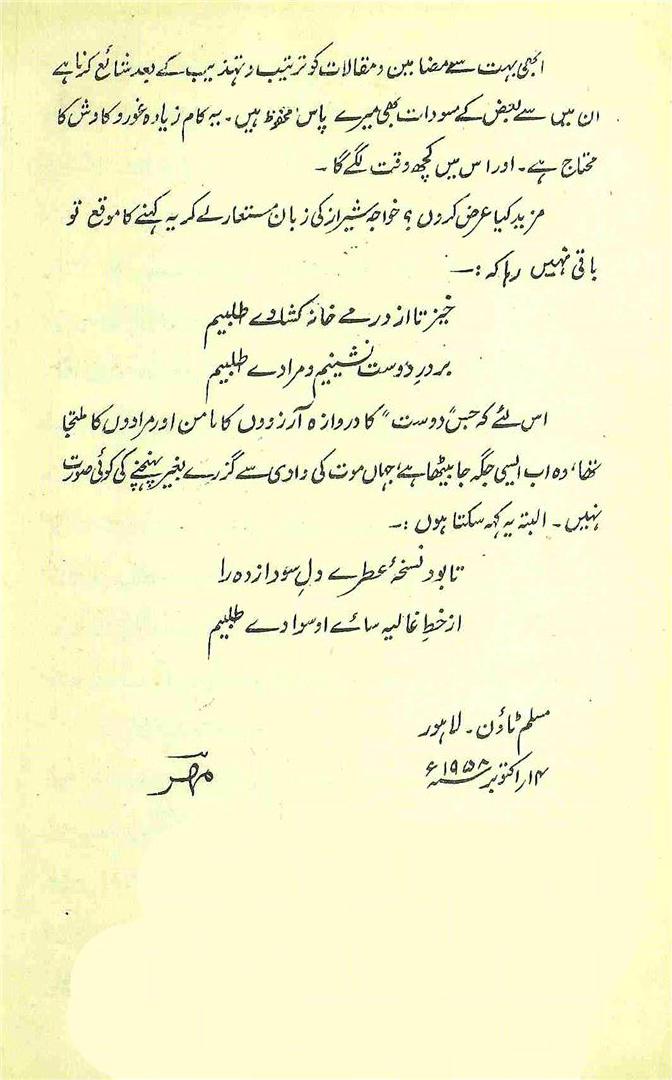 ابھی بہت سے مضامین و مقالات کو ترتیب و تہذیب کے بعد شائع کرنا ہے
ان میں سے بعض کے مسودات بھی میرے پاس محفوظ ہیں۔ یہ کام زیادہ غور و کاوش کا
محتاج ہے۔ اور اس میں کچھ وقت لگے گا۔
مزید کیا عرض کروں؟ خواجہ شیراز کی زبان مستعار لے کر یہ کہنے کا موقع تو
باقی نہیں رہا کہ :—
خیز تا از در مے خانہ کشادے طلبیم
بر درِ دوست نشینیم و مرادے طلبیم
اس لئے کہ جس "دوست" کا دروازہ آرزووں کا مامن اور مرادوں کا ملتجا
تھا، وہ اب ایسی جگہ جا بیٹھا ہے، جہاں موت کی وادی سے گزرے بغیر پہنچنے کی کوئی صورت
نہیں۔ البتہ یہ کہہ سکتا ہوں :—
تا بود نسخۂ عطرے دلِ سودا زدہ را
از خطِ غالیہ سائے او سوادے طلبیم
مسلم ٹاؤن۔ لاہور
۱۴؍ اکتوبر ۱۹۵۸ء
مہر